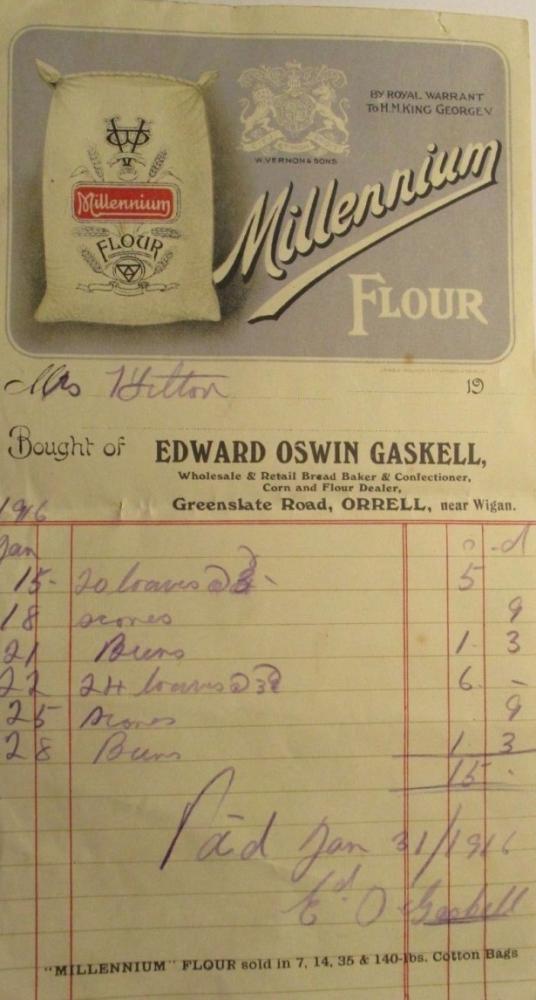 BY ROYAL WARRANT
TO H.M. KING GEORGE V
W. VERNON & SONS
Millennium
FLOUR
Millennium
FLOUR
Mrs Hilton 19
Bought of EDWARD OSWIN GASKELL,
Wholesale & Retail Bread Baker & Confectioner,
Corn and Flour Dealer,
Greenslate Road, ORRELL, near Wigan.
1916
Jan s d
15 20 loaves @ 3d 5 -
18 scones 9
21 Buns 1 3
22 24 loaves @ 3d 6 -
25 scones 9
28 Buns 1 3
15 -
Paid Jan 31/1916
Ed. O Gaskell
"MILLENNIUM" FLOUR sold in 7, 14, 35 & 140-lbs. Cotton Bags